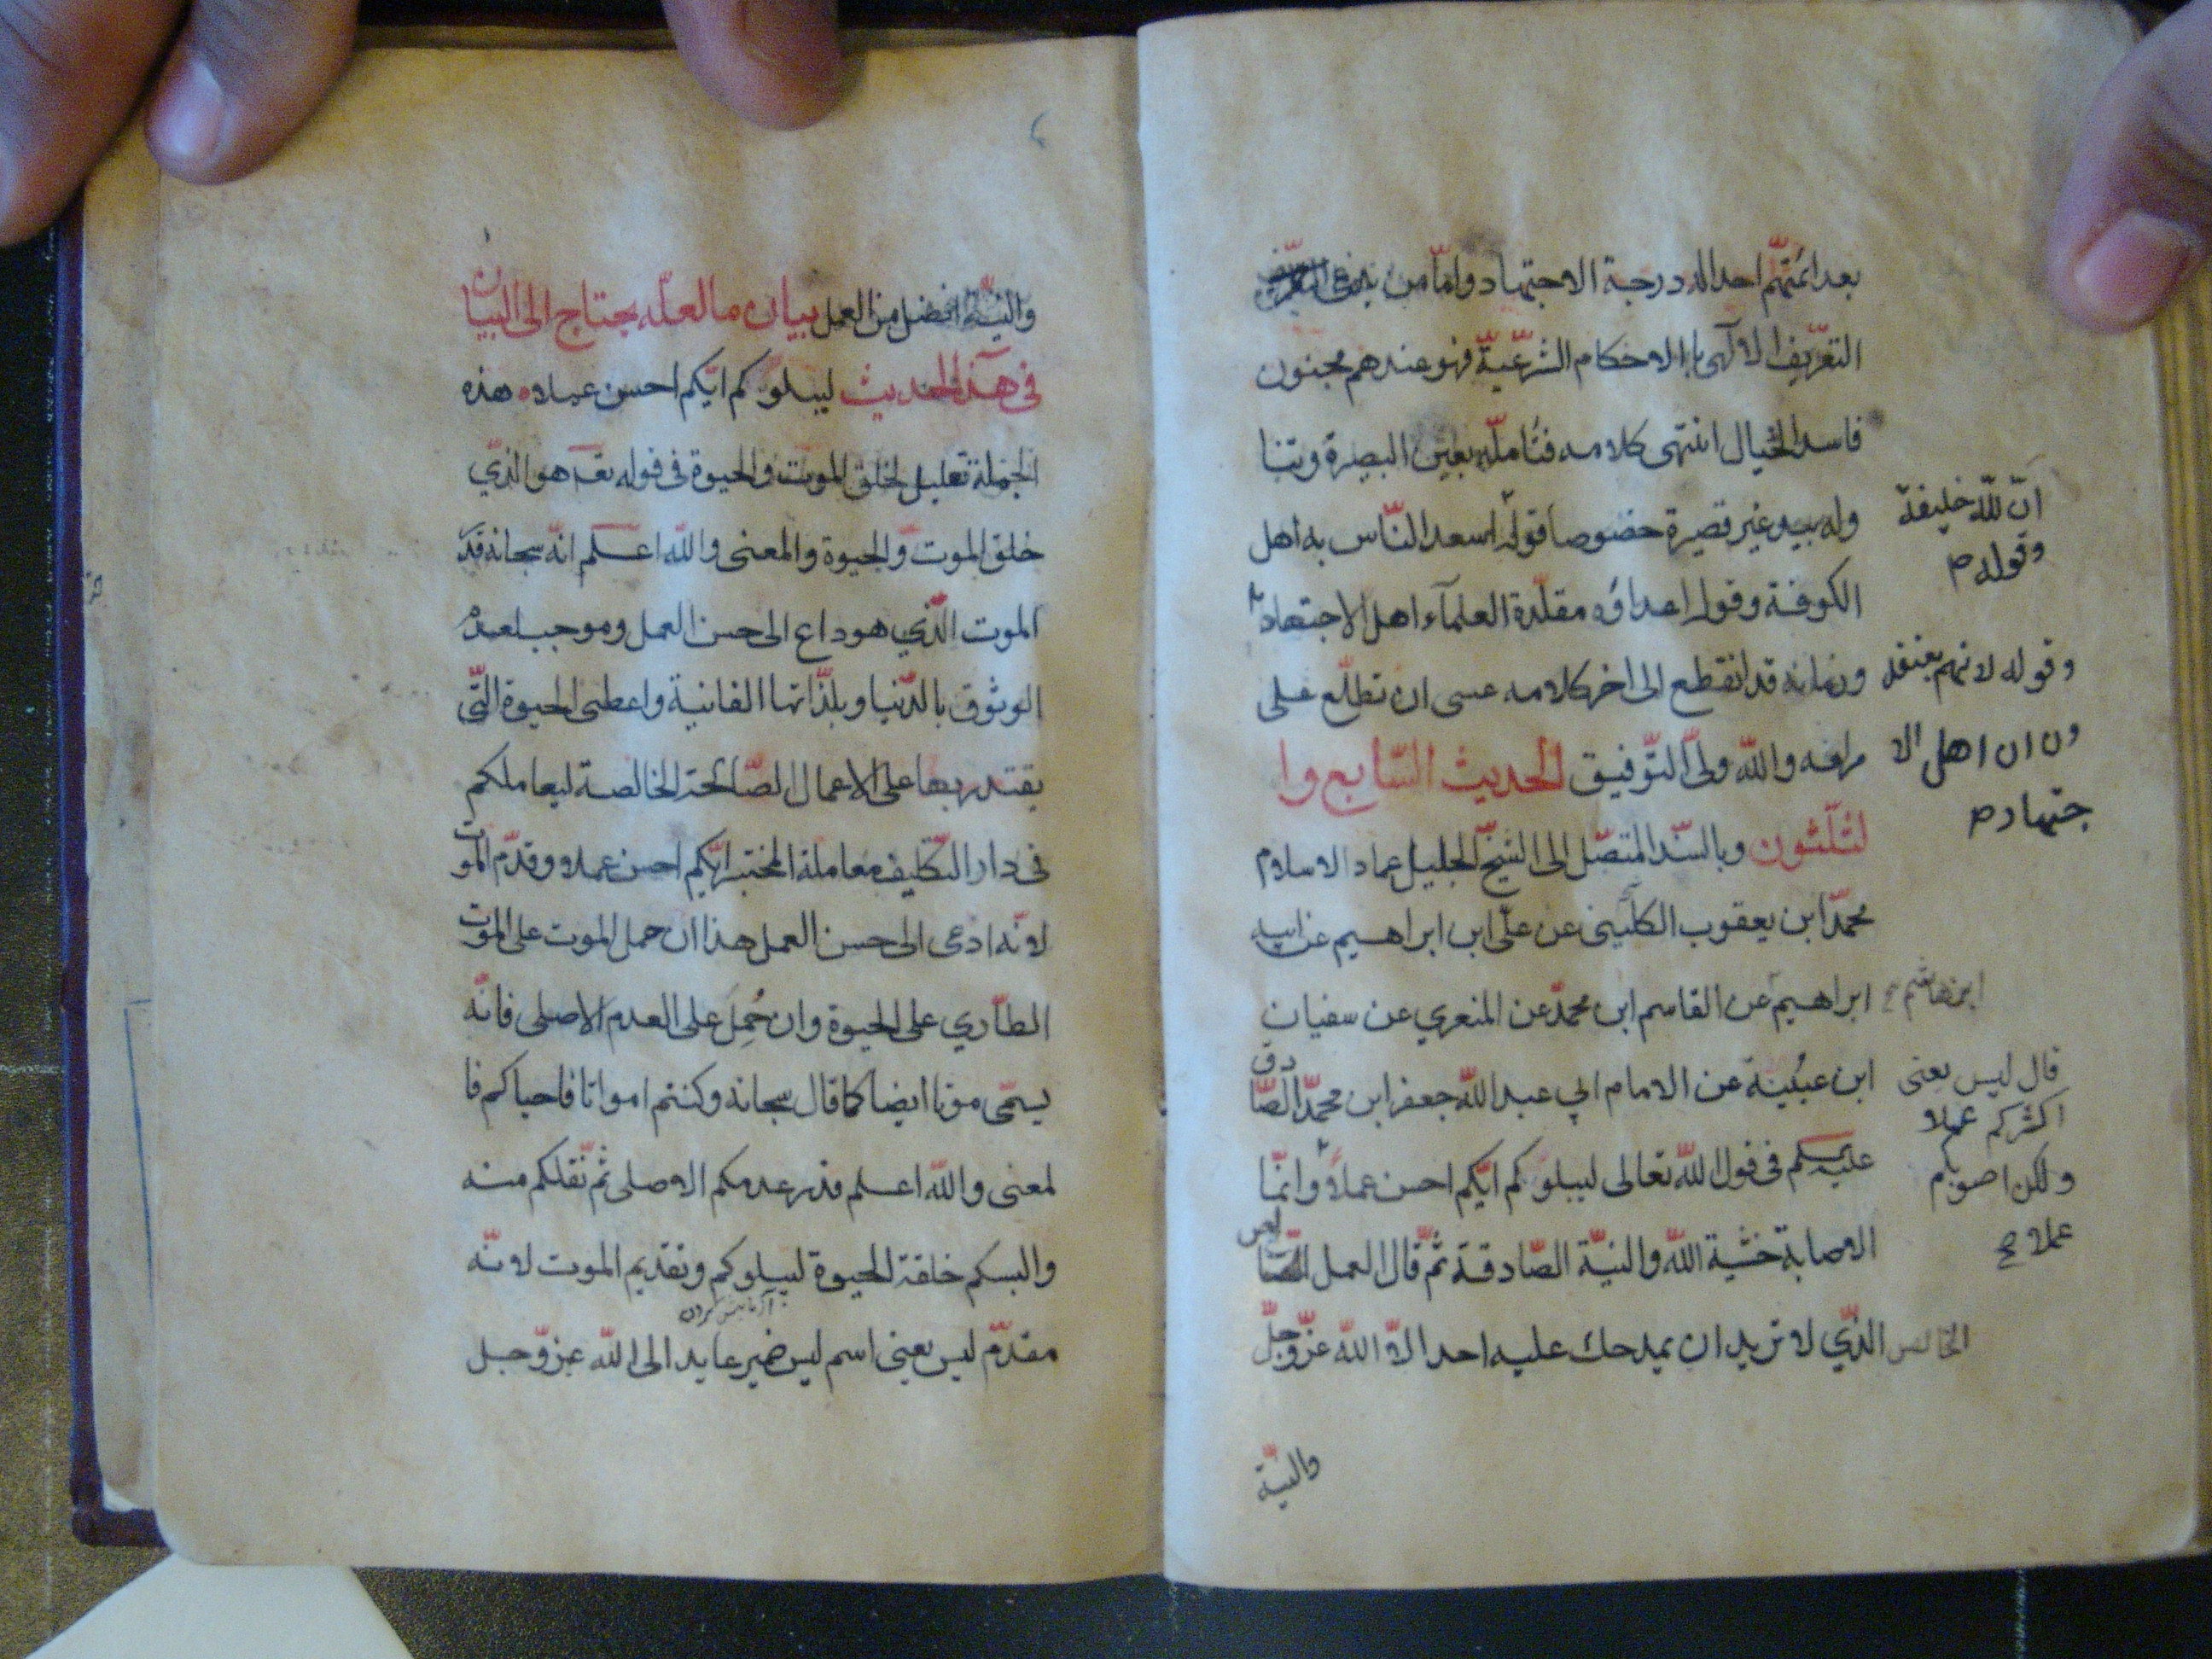 بعد ائمّتهم احدا له درجة الاجتهاد وامّا من يدعى
التعريف الالهى با الاحكام الشرعيّة فهو عندهم مجنون
فاسد الخيال انتهى كلامه فتأمله بعين البصيرة وتنا
وله بيد غير قصيرة خصوصا قوله اسعد النّاس به اهل
انّ للّه خليفة
وقوله م
الكوفة وقوله اعداؤه مقلّدة العلمآء اهل الاجتهاد
وزمانه قد انقطع الى اخر كلامه عسى ان تطلّع على
وقوله لانهم يعتقد
ون ان اهل الا
جتهاد م
مرامه واللّه ولىّ التّوفيق الحديث السّابع وا
لثلثون وبالسّند المتصّل الى الشيخ الجليل عماد الاسلام
محمّد ابن يعقوب الكلينى عن علّى ابن ابراهيم عن ابيه
ابراهيم عن القاسم ابن محمّد عن المنعري عن سفيان
ابن هاشم
ابن عيُينة عن الامام ابي عبد اللّه جعفر ابن محمّد الصّا
دق
عليه السلم فى قول اللّه تعالى ليبلوكم ايّكم احسن عملا وانمّا
قال ليس يعنى
اكثركم عملا
ولكن اصوبكم
عملا صح
الاصابة خشية اللّه والنيّة الصّادقة ثمّ قال العمل
الخالص الذّي لا تريد ان يمدحك عليه احد الاّ اللّه عزّوجلّ
والنيّة
والنيّة افضل من العمل بيان ما لعلّه يحتاج الى البيان
فى هذا الحديث ليبلوكم ايّكم احسن عملا هذه
الجملة تعليل لخلق الموت والحيوة فى قوله تعه هو الذّي
خلق الموت والحيوة والمعنى واللّه اعلم انّه سبحانه قدّر
الموت الّذي هو داع الى حسن العمل وموجب لعدم
الوثوق بالدّنيا وبلذّاتها الفانية واعطى الحيوة الّتى
يقتدر بها على الاعمال الصّالحة الخالصة ليعاملكم
فى دار التكليف معاملة المختبر ايّكم احسن عملا وقدّم الموت
لانّه ادعى الى حسن العمل هذا ان حمل الموت على الموت
الطّاري على الحيوة وان حُمِلَ على العدم الاصلى فانّه
يسمّى موتا ايضا كما قال سبحانه وكنتم امواتا فاحياكم فا
لمعنى واللّه اعلم قدر عدمكم الاصلى ثمّ نقلكم منه
والبسكم خلقة الحيوة ليبلوكم وتقديم الموت لانّه
آزمايش كردن
مقدّم ليس يعنى اسم ليس ضمير عايد الى اللّه عزّوجل